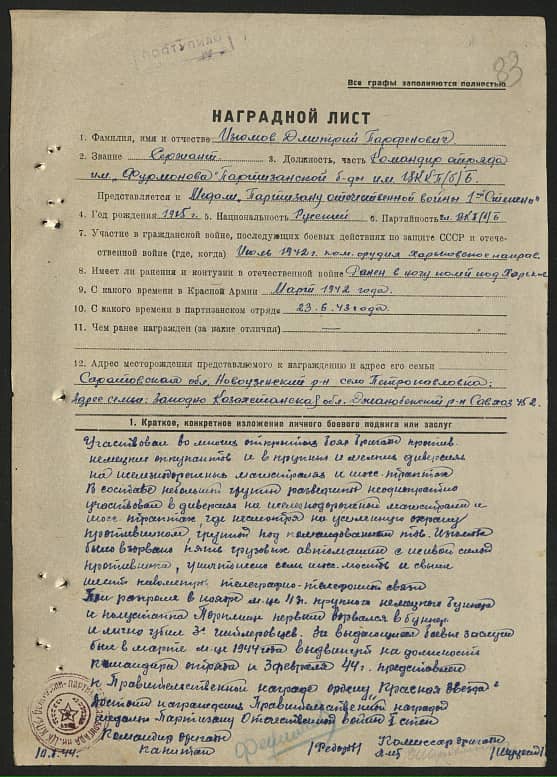 ПОСТУПИЛО
83
Все графы заполняются полностью
НАГРАДНОЙ ЛИСТ
1. Фамилия, имя и отчество Изюмов Дмитрий Парфенович
2. Звание Сержант 3. Должность, часть Командир отряда
им. "Фурмонова" Партизанской б-ды им. ЦККП/б/Б.
Представляется к Медал. "Партизану отечественной войны 1ой Степени"
4. Год рождения 1925 г. 5. Национальность Русский 6. Партийность чл. ВКП/б/
7. Участие в гражданской войне, последующих боевых действиях по защите СССР и отече-
ственной войне (где, когда) Июль 1942 г. пом. орудия Харьковское направ.
8. Имеет ли ранения и контузии в отечественной войне Ранен в ногу под Харьк
9. С какого времени в Красной Армии Март 1942 года.
10. С какого времени в партизанском отряде 23.6.43 года.
11. Чем ранее награжден (за какие отличия) —
12. Адрес месторождения представляемого к награждению и адрес его семьи
Саратовская обл. Новоузенский р-н село Петропавловка;
Адрес семьи: Западно Казахстанская обл. Джаныбекский р-н Савхоз 452.
1. Краткое, конкретное изложение личного боевого подвига или заслуг
Участвовал во многих открытых боях бригады против
немецких оккупантов и в крупных и мелких диверсиях
на железнодорожных магистралях и шосс. трактах
В составе небольшой группы разведчик неоднократно
участвовал в диверсиях на железнодорожной магистрали и
шосс трактах где несмотря на усиленную охрану
противником, группой под командованием тов. Изюмова
было взорвано пять грузовых автомашин с живой силой
противника, уничтожено семь шос. мостов и свыше
шести километр. телеграфно-телефонной связи
При разгроме в ноябре м-це 43г. крупного немецкого бункера
и полустанка первым ворвался в бункер
и лично убил 3х гитлеровцев. За выдающиеся боевые заслуги
был в марте м-це 1944 года выдвинут на должность
командира отряда и 3 февраля 44г. представлен
к Правительственной награде ордену "Красная Звезда"
Достоин награждения Правительственной наградой
медалью Партизану Отечественной войны I степ
Командир бригады Комиссар бригады
капитан (Федоров)
10.8.44.